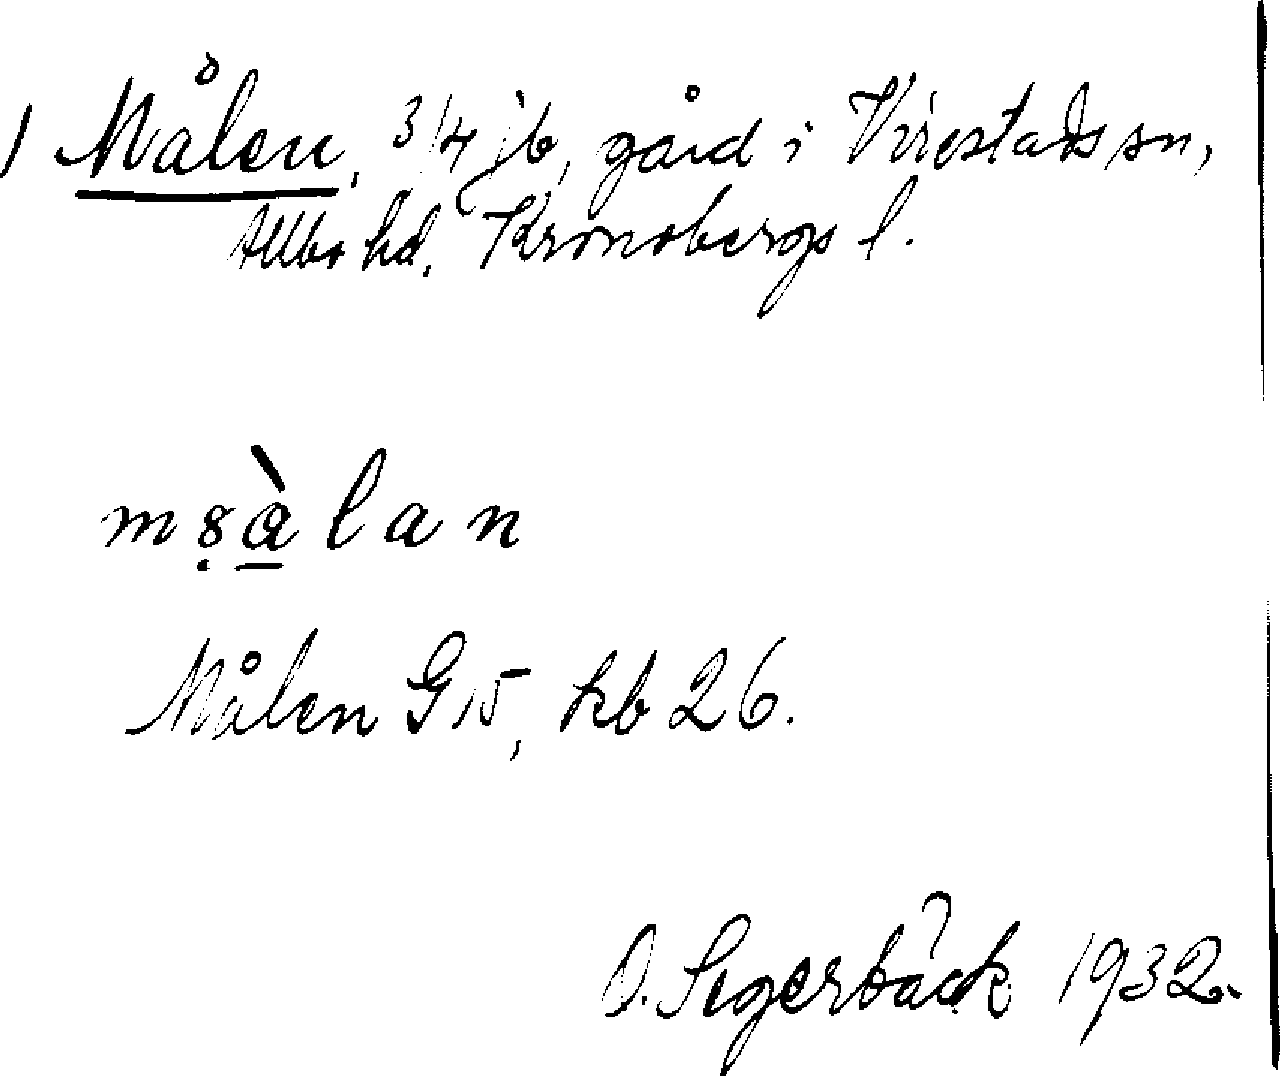 1 Målen, 3/4 jb, gård i Virestads sn,
Allbo hd, Kronobergs l.
mạ̊̀lan
Målen G 15, kb 26.
O. Segerbäck 1932.